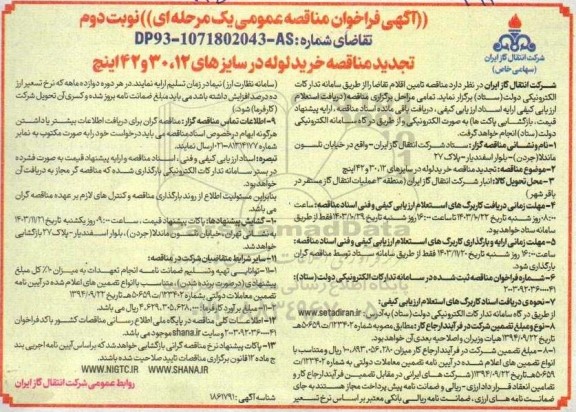 ((آگهی فراخوان مناقصه عمومی یک مرحله ای)) نوبت دوم
تقاضای شماره: DP93-1071802043-AS
تجدید مناقصه خرید لوله در سایزهای ۱۲، ۳۰ و ۴۲ اینچ
شرکت انتقال گاز ایران
(سهامی خاص)
شرکت انتقال گاز ایران در نظر دارد مناقصه تامین اقلام تقاضا را از طریق سامانه تدارکات
الکترونیکی دولت (ستاد) برگزار نماید. تمامی مراحل برگزاری مناقصه (دریافت استعلام
ارزیابی کیفی ارایه اسناد ارزیابی کیفی، دریافت باقی مانده اسناد مناقصه، ارایه پیشنهاد
قیمت، بازگشایی پاکت ها) به صورت الکترونیکی و از طریق درگاه سامانه الکترونیکی
دولت (ستاد) انجام خواهد گرفت.
۱- نام و نشانی مناقصه گزار: شرکت انتقال گاز ایران - واقع در خیابان نلسون
ماندلا (جردن) - بلوار اسفندیار - پلاک ۲۷
۲- موضوع مناقصه: تجدید مناقصه خرید لوله در سایزهای ۱۲، ۳۰ و ۴۲ اینچ
۳- محل تحویل کالا: انبار شرکت انتقال گاز ایران (منطقه ۳ عملیات انتقال گاز مستقر در
باقر شهر)
۴- مهلت زمانی دریافت کاربرگ های استعلام ارزیابی کیفی و فنی اسناد مناقصه: ساعت
۰۸:۰۰ روز شنبه تاریخ ۱۴۰۳/۱۰/۲۲ تا ساعت ۱۶:۰۰ روز شنبه تاریخ ۱۴۰۳/۱۰/۲۹ فقط از طریق
سامانه ستاد خواهد بود.
۵- مهلت زمانی ارایه و بارگذاری کاربرگ های استعلام ارزیابی کیفی و فنی اسناد مناقصه:
ساعت ۱۶:۰۰ روز شنبه تاریخ ۱۴۰۳/۱۱/۲۰ فقط از طریق سامانه ستاد توسط مناقصه گران
بارگذاری شود.
۶- شماره فراخوان مناقصه ثبت شده در سامانه تدارکات الکترونیکی دولت (ستاد):
۷- نحوه ی دریافت اسناد کاربرگ های استعلام ارزیابی کیفی:
از طریق درگاه سامانه تدارکات الکترونیکی دولت (ستاد) به آدرس: www.setadiran.ir
۸- نوع و مبلغ تضمین شرکت در فرآیند ارجاع کار: مطابق مصوبه شماره ۱۲۳۴۰۲/ت۵۰۶۵۹هـ
تاریخ ۱۳۹۴/۰۹/۲۲ هیات وزیران و اصلاحیه بعدی آن خواهد بود.
۸-۱- مبلغ تضمین شرکت در فرآیند ارجاع کار میزان ریال و متناسب با
انواع تضمین های اعلام شده در آیین نامه تضمین معاملات دولتی به شماره ۱۲۳۴۰۲/ت
۵۰۶۵۹هـ تاریخ ۱۳۹۴/۰۹/۲۲ (شرکت های ایرانی در مقابل تضمین شرکت در فرآیند ارجاع کار و
تضامین انعقاد قرارداد ارزی - ریالی و ضمانت نامه پیش پرداخت مجاز هستند به جای
ضمانت نامه های ارزی، ضمانت نامه ریالی بانکی معتبر بر اساس نرخ تسعیر
(سامانه نظارت ارز) نیما در زمان تسلیم ارایه نمایند. در هر دوره دوازده ماهه که نرخ تسعیر ارز
ده درصد افزایش داشته باشد می باید مبلغ ضمانت نامه بروز شده و کسری آن تحویل شرکت
(کارفرما) شود)
۹- اطلاعات تماس مناقصه گزار: مناقصه گران برای دریافت اطلاعات بیشتر یا داشتن
هرگونه ابهام درخصوص اسناد مناقصه می باید درخواست خود را به صورت مکتوب به نمابر
ارسال نمایند.
تبصره: اسناد ارزیابی کیفی و فنی، اسناد مناقصه و ارایه پیشنهاد قیمت به صورت فشرده
در بستر سامانه تدارکات الکترونیکی بارگذاری شده که مناقصه گر مجاز به دریافت آن
خواهد بود.
بنابراین مسئولیت اطلاع از روند بارگذاری مناقصه و کنترل های لازم بر عهده مناقصه گران
می باشد.
۱۰- گشایش پیشنهادها: پاکات پیشنهاد قیمت، ساعت ۰۹:۰۰ روز یکشنبه تاریخ ۱۴۰۳/۱۱/۲۱
به نشانی تهران، خیابان نلسون ماندلا (جردن)، بلوار اسفندیار - پلاک ۲۷ بازگشایی
خواهد شد.
۱۱- سایر شرایط متقاضیان شرکت در مناقصه:
۱۱-۱- توانایی تهیه و تسلیم ضمانت نامه انجام تعهدات به میزان ۱۰٪ کل مبلغ
پیشنهادی (در صورت برنده شدن)، متناسب با انواع تضمین های اعلام شده در آیین نامه
تضمین معاملات دولتی بشماره ۱۲۳۴۰۲/ت۵۰۶۵۹هـ تاریخ ۱۳۹۴/۰۹/۲۲
۱۲- اطلاعات کلی مناقصه در پایگاه ملی اطلاع رسانی مناقصات کشور با کد فراخوان
و سایت shana.ir موجود می باشد.
۱۳- پاکات پیشنهاد نرخ مناقصه گرانی بازگشایی خواهد شد که براساس آیین نامه اجرایی بند
ج ماده ۱۲ قانون برگزاری مناقصات تایید صلاحیت شده باشند.
WWW.NIGTC.IR WWW.SHANA.IR
شناسه آگهی: ۱۸۶۱۷۹۱
روابط عمومی شرکت انتقال گاز ایران